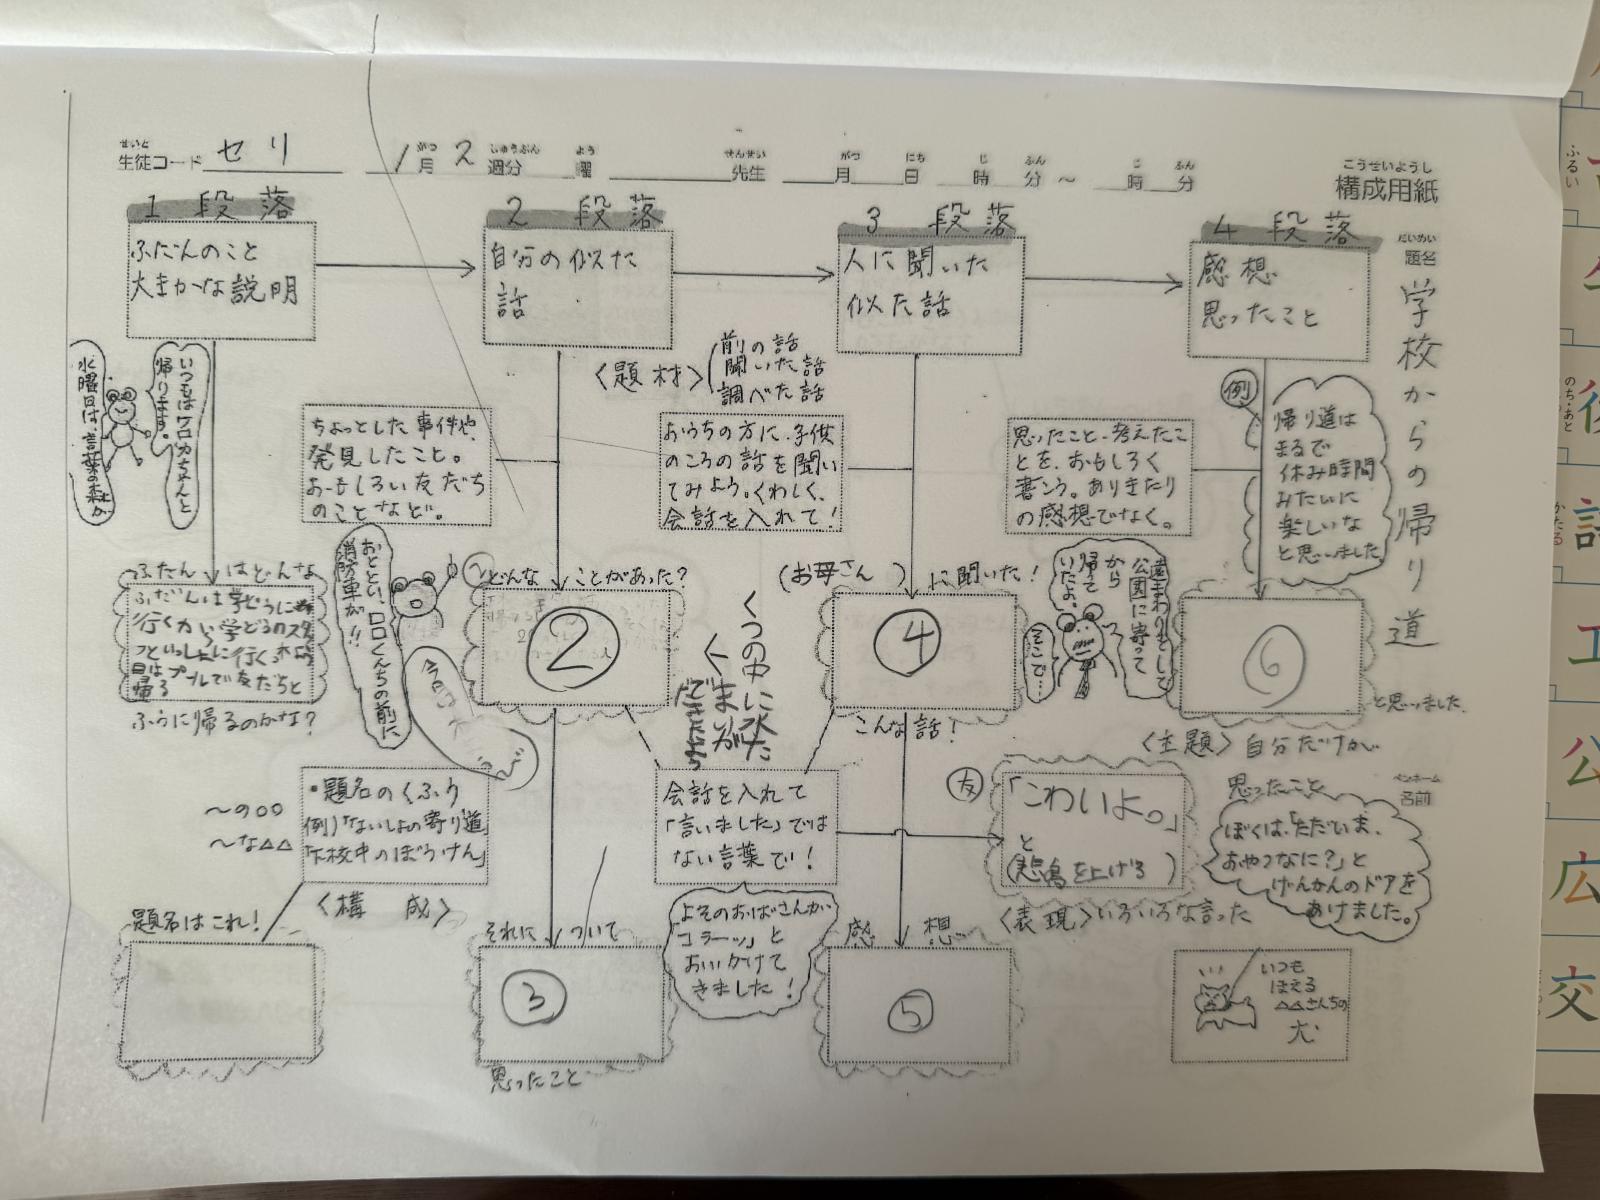 せいと
生徒コード セリ
1月 2週分 曜 先生 月 日 時 分 ～ 時 分
がつ しゅうぶん よう せんせい がつ にち じ ふん じ ふん
こうせいようし
構成用紙
だいめい
題名
学校からの帰り道
1 段落
ふだんのこと
大まかな説明
2 段落
自分の似た
話
3 段落
人に聞いた
似た話
4 段落
感想
思ったこと
いつもはワロカちゃんと
帰ります。
水曜日は、言葉の森か
〈題材〉
前の話
聞いた話
調べた話
ちょっとした事件や、
発見したこと。
おもしろい友だち
のことなど。
おうちの方に、子供
のころの話を聞い
てみよう。くわしく、
会話を入れて!
思ったこと、考えたこ
とを、おもしろく
書こう。ありきたり
の感想でなく。
例
帰り道は
まるで
休み時間
みたいに
楽しいな
と思いました
ふだんはどんな
ふだんは学どうに
行くから学どうの
といっしょに行く
日はプールで友だちと
帰る
ふうに帰るのかな?
おととい、ロロくんちの前に
消防車が!!
～どんなことがあった?
2
くつの中に水た
まりが
できたよ
(お母さん)に聞いた!
4
こんな話!
遠まわりをして
公園に寄って
から
帰って
いたよ。
そこで…
6
と思いました。
〈主題〉自分だけが
思ったこと
ペンネーム
名前
～の○○
～な△△
・題名のくふう
例)「ないしょの寄り道」
「下校中のぼうけん」
〈構 成〉
会話を入れて
「言いました」では
ない言葉で!
友
「こわいよ。」
と
(悲鳴を上げる)
〈表現〉いろいろな言った
ぼくは、「ただいま、
おやつなに?」と
げんかんのドアを
あけました。
題名はこれ!
それについて
3
思ったこと
よそのおばさんが
「コラーッ」と
おいかけて
きました!
感 想
5
いつも
ほえる
△△さんちの
犬
ふるい
のち・あと
後
かたる
工
公
広
交